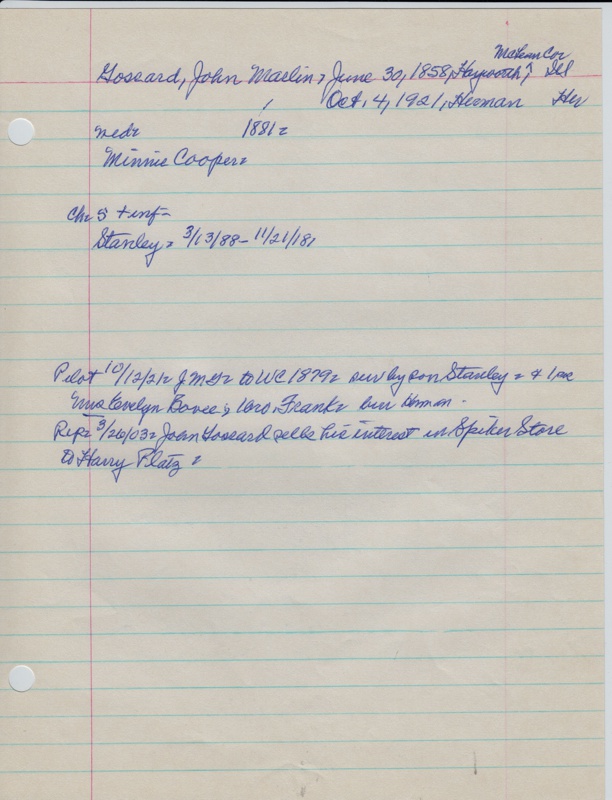 McLean Co.
Gossard, John Maclin, June 30, 1858, Heyworth, Ill
Oct. 4, 1921, Herman Her
md. 1881.
Minnie Cooper.
Ch: 5 + inf-
Stanley, 3/13/88 - 11/21/181
Pilot 10/12/21. J M G. to WC 1879. surv by son Stanley. & 1
Evelyn Bovee, bro. Frank. bur Herman.
Rep. 3/26/03. John Gossard sells his interest in Spiker Store
to Harry Platz.